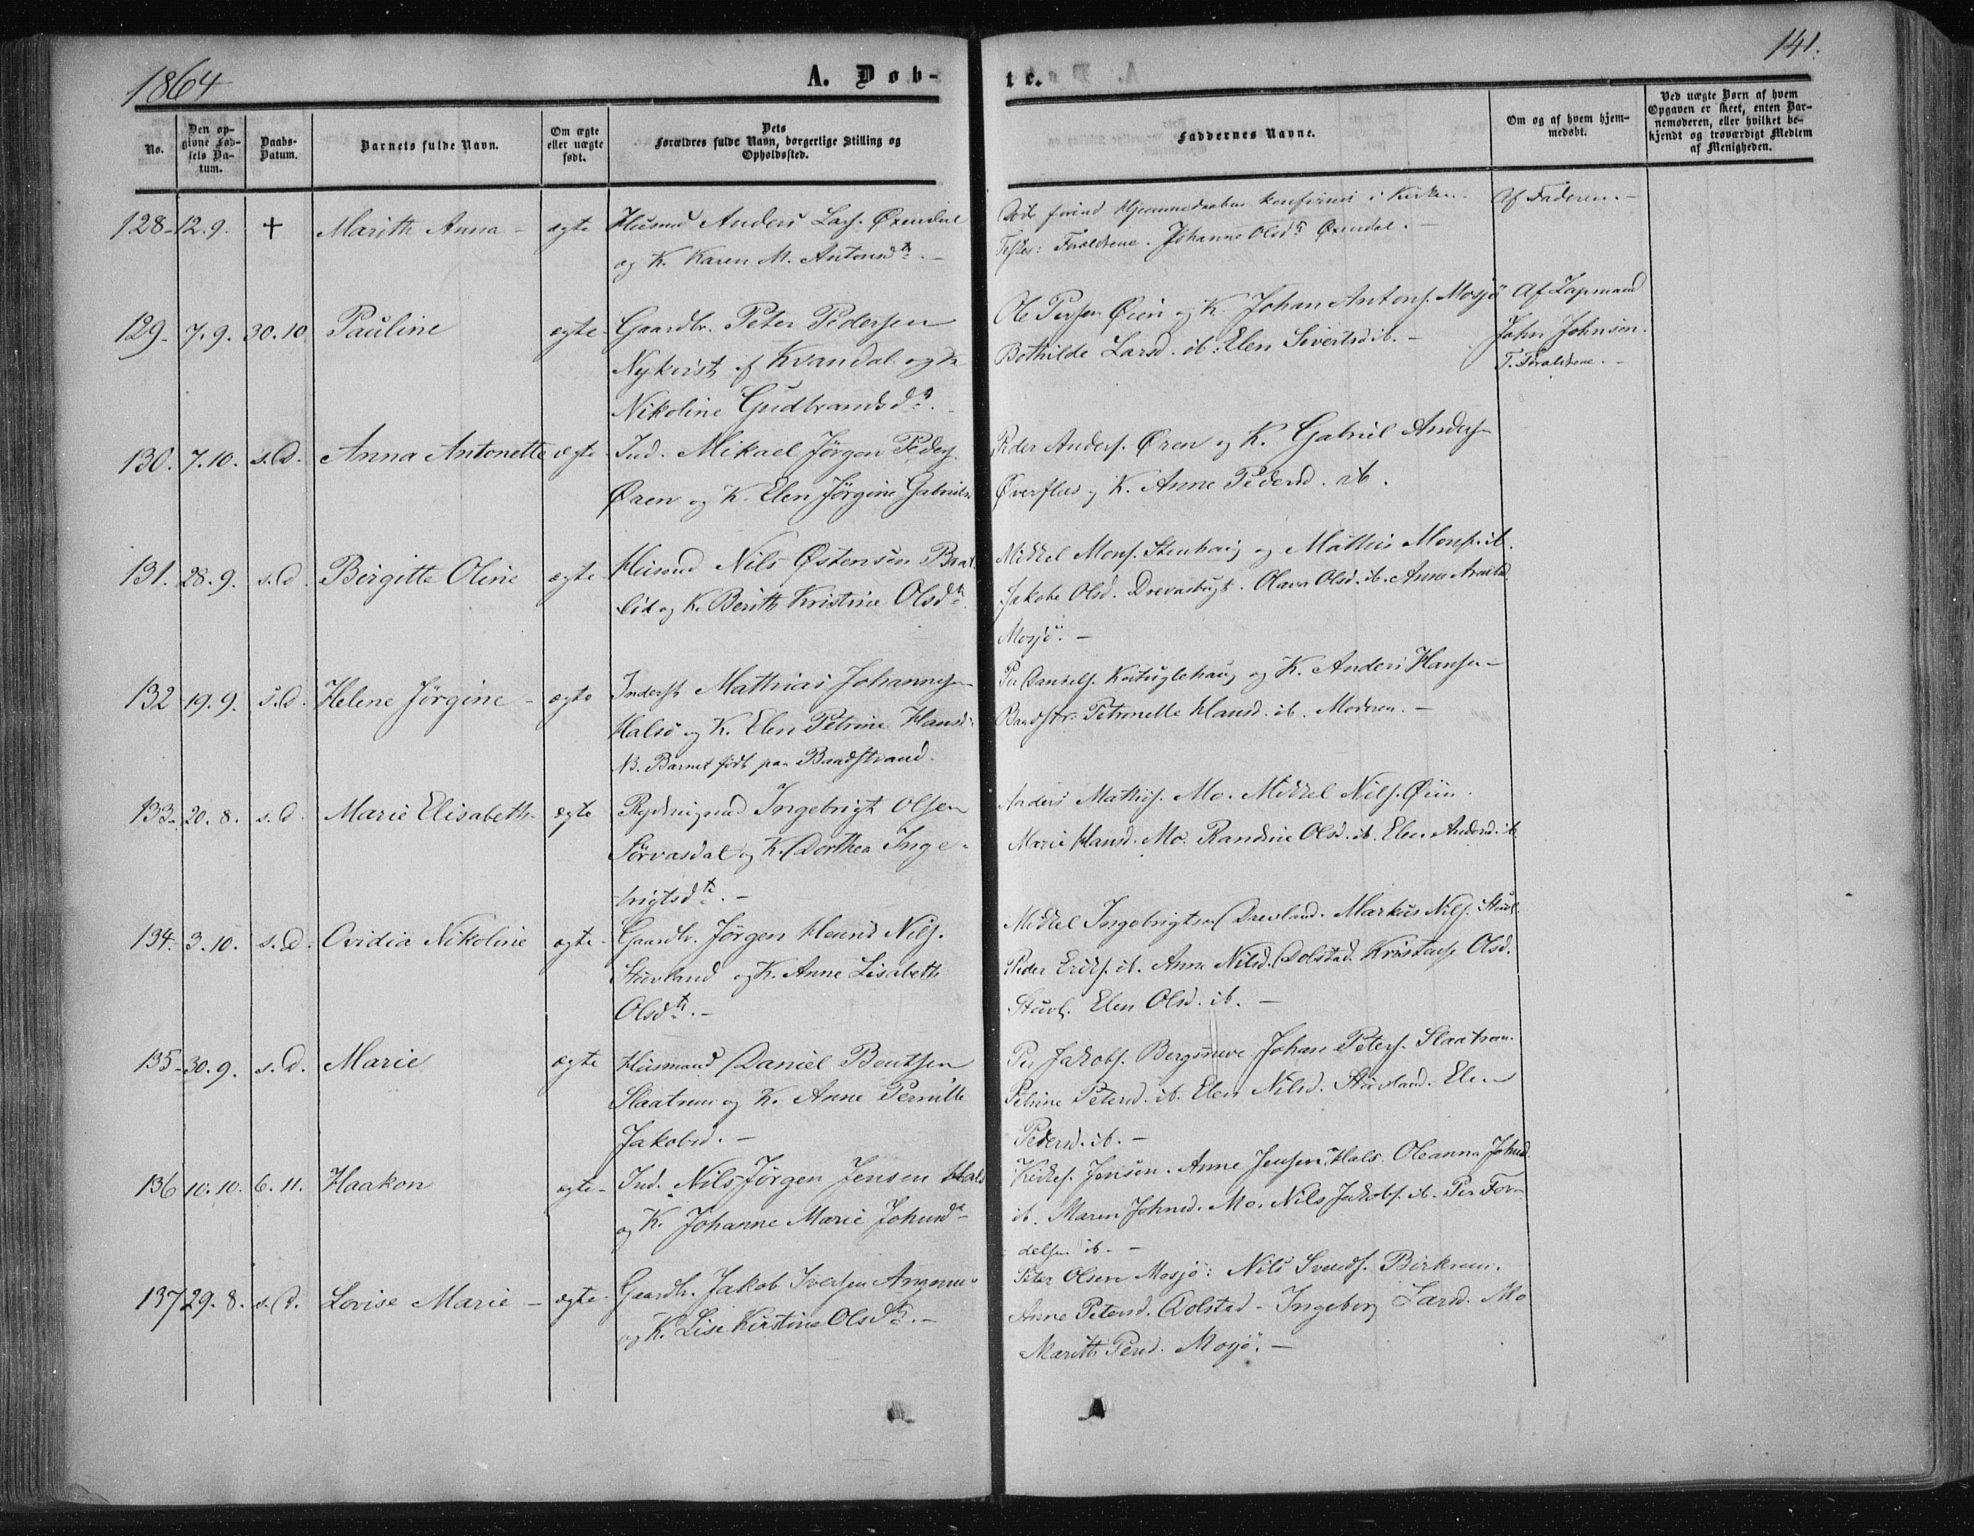 1864
A. Døb-
te.
141.
No.
Den opgivne Fødsels Datum.
Daabs-Datum.
Barnets fulde Navn.
Om ægte eller uægte født.
Dets Forældres fulde Navn, borgerlige Stilling og Opholdssted.
Faddernes Navne.
Om og af hvem hjemmedøbt.
Ved uægte Børn af hvem Opgaven er skeet, enten Barnemoderen, eller hvilket bekjendt og troværdigt Medlem af Menigheden.
128 - 12.9. + Marith Anna - ægte Husmd Anders Lars. Øxendal
og K. Karen M. Antonsd. -
Død forind Hjemmedaaben konfirmr i Kirken. Af Faderen. -
Test: Forældrene. Johanne Olsd. Øxendal. -
129. 7.9. 30.10 Pauline ægte Gaardbr. Peter Pedersen
Nykvist af Kvandal og K
Nikoline Gudbrandsd. -
Ole Persen Øien og K. Johan Antons. Mosjø Af Lapmand
Bothilde Larsd. ib. Elen Sivertsd ib. - John Johnsen.
T. Forældrene. -
130. 7.10. s.D. Anna Antonette ægte Ind. Mikael Jørgen Peders.
Øren og K. Elen Jørgine Gabriels
Peder Anders. Øren og K. Gabriel Anders
og K. Anne Pedersd. ib.
131. 28.9. s.d. Birgitte Oline ægte Husmd Nils Østensen
lid og K. Berith Kristine Olsd.
Mikkel Mons. Stenhaug og Mathis Mons. ib.
Jakobe Olsd. Drevasbugt. Olava Olsd. ib. Anne
Mosjø. -
132 19.9. s.d. Helene Jørgine - ægte Inderst Mathias Johannes
Halsø og K. Elen Petrine Hansd
NB. Barnet født paa Baadstrand.
Per Daniels. og K. Anders Hansen
Petronelle Hansd. ib. Moderen. -
133. 20.8. s.d. Marie Elisabeth - ægte Rydningsmd Ingebrigt Olsen
Sørvasdal og K. Dorthea Inge-
brigtsd. -
Anders Mathis. Mo. Mikkel Nils. Øien.
Marie Hansd. Mo. Randine Olsd. ib. Elen Andersd. ib
134. 3.10. s.d. Ovidia Nikoline ægte - Gaardbr. Jørgen Nils.
Stuvland og K. Anne Lisabeth
Olsd. -
Mikkel Ingebrigtsen Drevland. Markus Nils. Stuvl.
Peder Eriks. ib. Anne Nilsd. Dolstad. Olsd.
Stuvl. Elen Olsd. ib. -
135 - 30.9. s.d. Marie ægte Husmand Daniel Bentsen
Slaatrem og K. Anne Pernille
Jakobsd. -
Per Jakobs. Johan Peters. Slaatrem.
Petrine Petersd. ib. Elen Nilsd. Stuvland. Elen
Pedersd. ib. -
136 10.10. 6.11. Haakon ægte - Ind. Nils Jørgen Jensen Hals
og K. Johanne Marie Johnsd
Jensen. Anne Jensen Hals. Oleanna Johnsd.
ib. Maren Johnsd. Mo. Nils Jakobs. ib. Per For-
dels. ib. -
137 29.8. s.d. Lovise Marie - ægte. Gaardbr. Jakob Iversen
og K. Lise Kirstine Olsd. -
Peter Olsen Mosjø: Nils Svends. Birkrem.
Anne Petersd. Dolstad - Ingeborg Larsd. Mo
Marith Persd. Mosjø. -